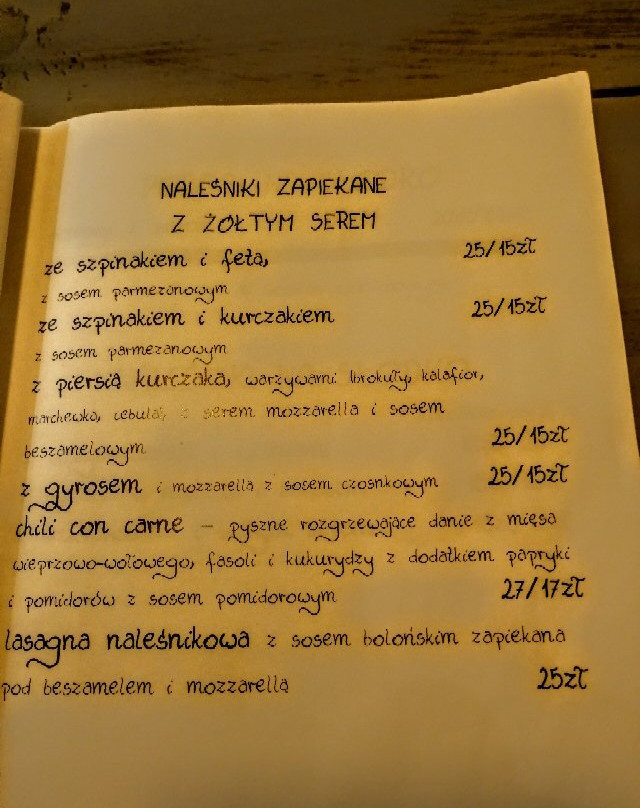 NALEŚNIKI ZAPIEKANE
Z ŻÓŁTYM SEREM
ze szpinakiem i fetą, 25/15zł
z sosem parmezanowym
ze szpinakiem i kurczakiem 25/15zł
z sosem parmezanowym
z piersią kurczaka, warzywami (brokuły, kalafior,
marchewka, cebula), z serem mozzarella i sosem
beszamelowym 25/15zł
z gyrosem i mozzarellą z sosem czosnkowym 25/15zł
chili con carne - pyszne rozgrzewające danie z mięsa
wieprzowo-wołowego, fasoli i kukurydzy z dodatkiem papryki
i pomidorów z sosem pomidorowym 27/17zł
lasagna naleśnikowa z sosem bolońskim zapiekana
pod beszamelem i mozzarellą 25zł